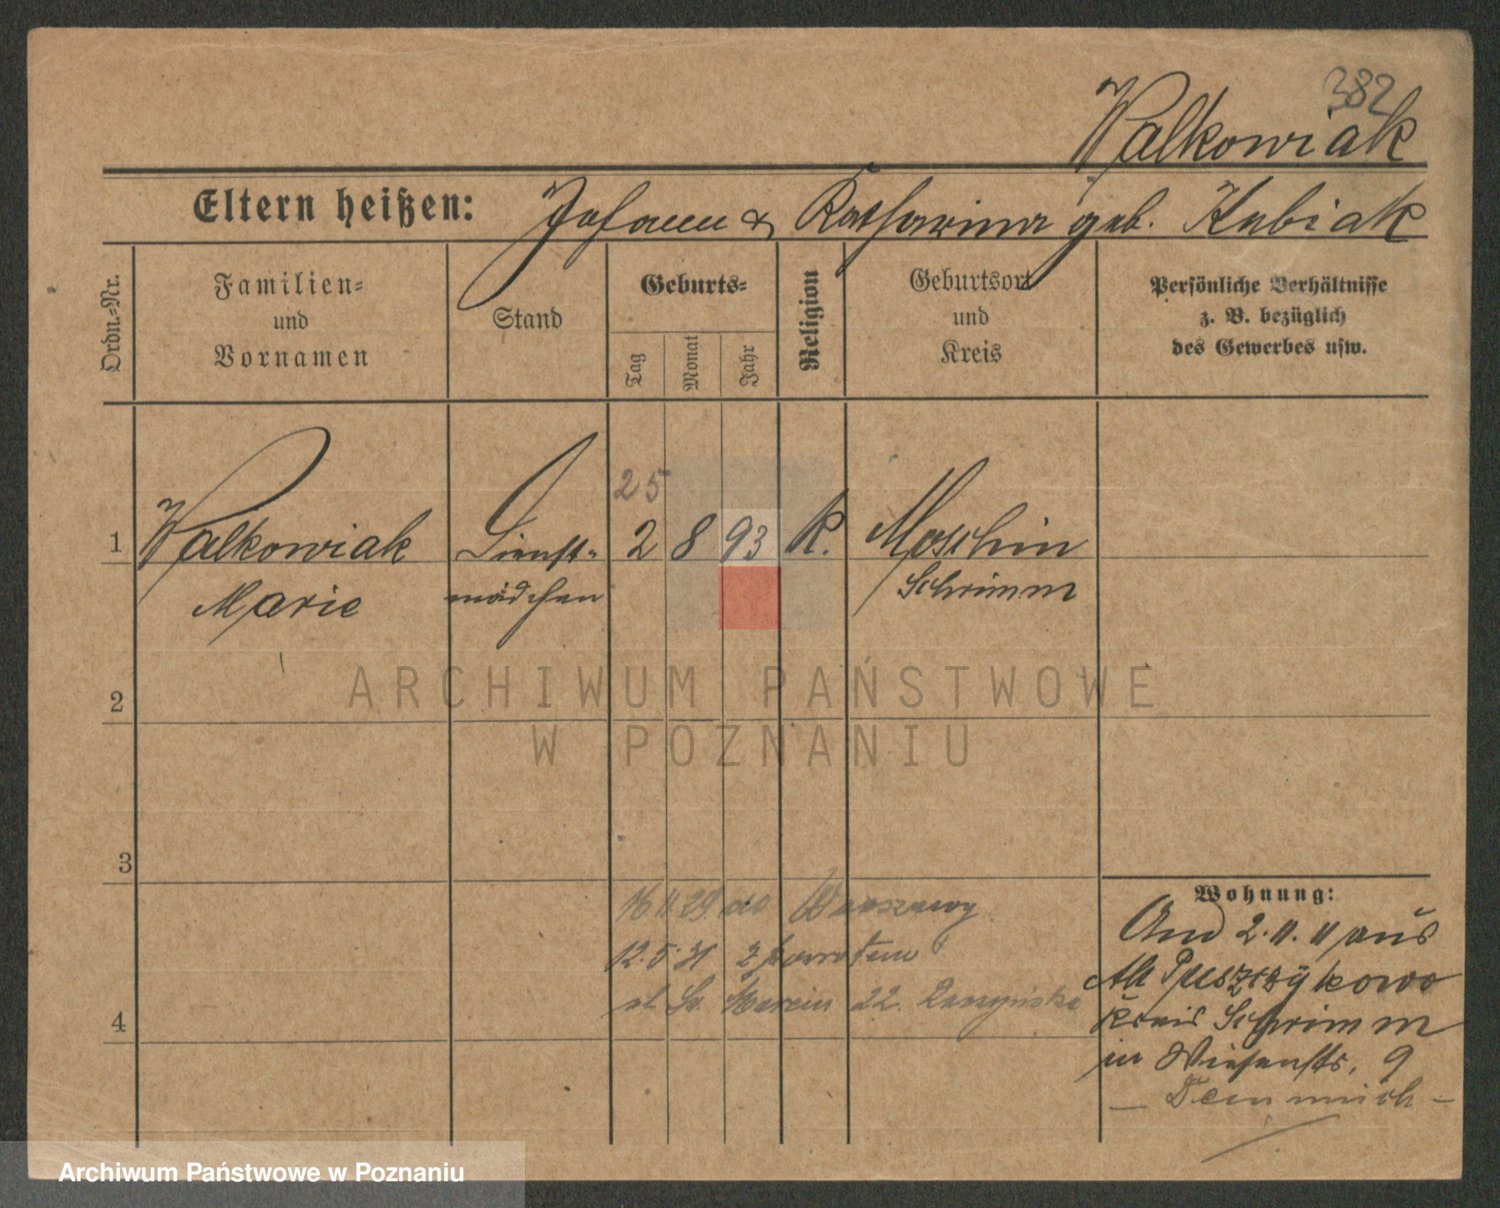 382
Walkowiak
Eltern heißen: Johann & Katharina geb. Kubiak
Ordn.-Nr.
Familien-
und
Vornamen
Stand
Geburts-
Tag
Monat
Jahr
Religion
Geburtsort
und
Kreis
Persönliche Verhältnisse
z. B. bezüglich
des Gewerbes usw.
25
1 Walkowiak Dienst- 2 8 93 K. Moschin
Marie mädchen Schrimm
2
ARCHIWUM PAŃSTWOWE
W POZNANIU
3
Wohnung:
And 2.11.11 aus
Alt Puszczykowo
Kreis Schrimm
in Wiesenstr. 9
16 11 29 do Warszawy
12.5.31 z powrotem
ul. Św. Marcin 22.
4
Archiwum Państwowe w Poznaniu